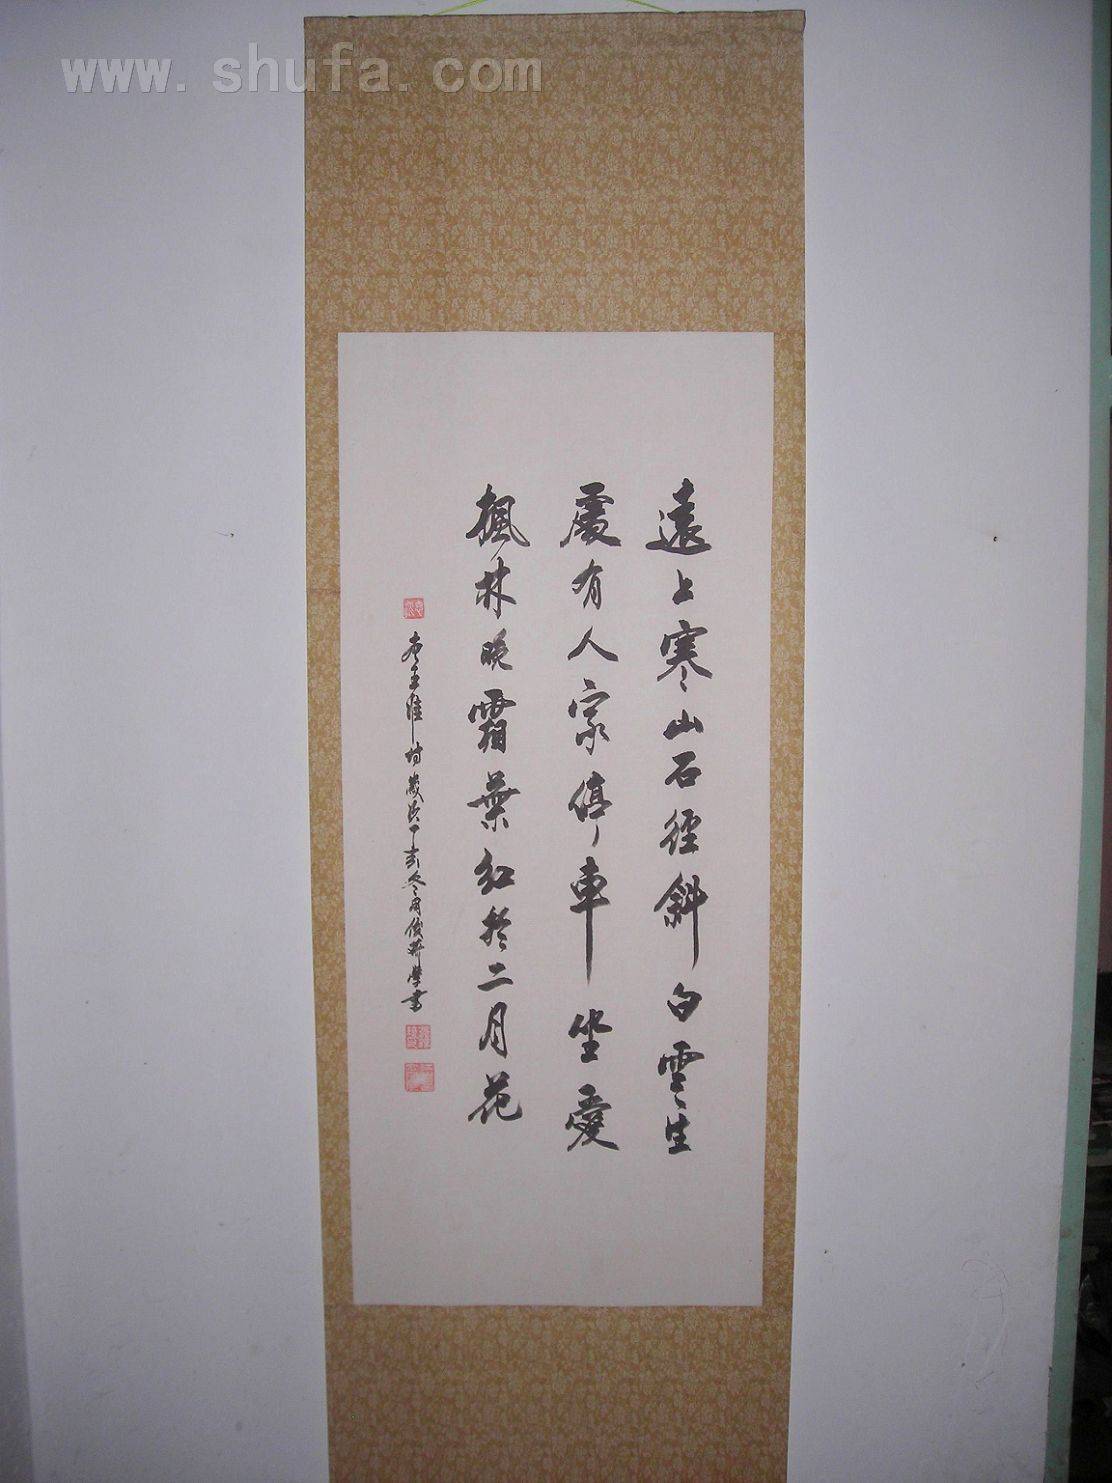 www.shufa.com
遠上寒山石徑斜白雲生
處有人家停車坐愛
楓林晚霜葉紅於二月花
王維詩歲次丁亥冬月俊華學書